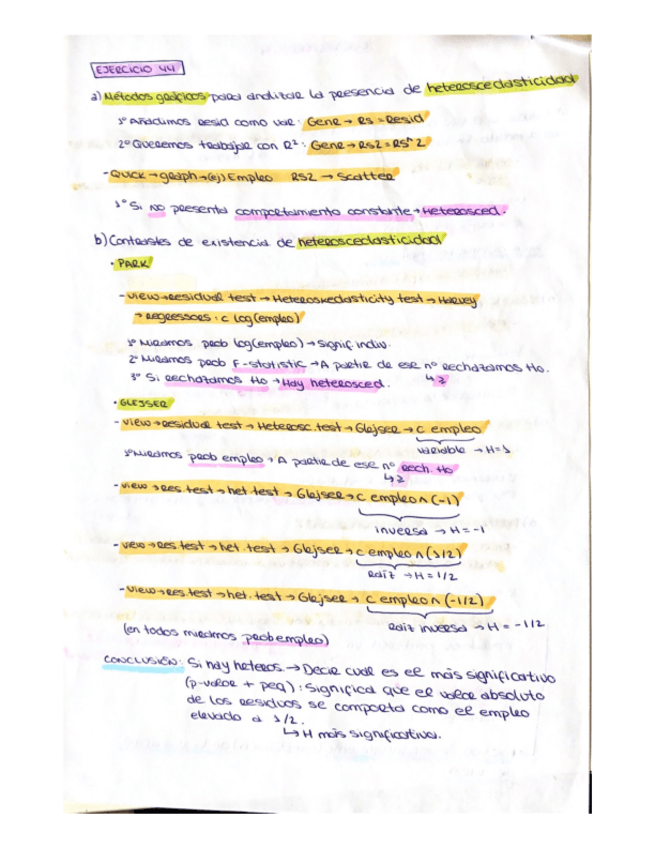 EJERCICIO 44
a) Métodos gráficos para analizar la presencia de heteroscedasticidad
1º Añadimos resid como var: Genr → RS = Resid
2º Queremos trabajar con R²: Genr → RS2 = RS^2
- Quick → graph → (ej) Empleo RS2 → Scatter
3º Si NO presenta comportamiento constante → Heterosced.
b) Contrastes de existencia de heteroscedasticidad
· PARK
- view → residual test → Heteroskedasticity test → Harvey
→ regressors: c log(empleo)
1º Miramos prob log(empleo) → Signif. indiv.
2º Miramos prob F-statistic → A partir de ese nº rechazamos Ho.
3º Si rechazamos Ho → Hay heterosced. ↳ 2
· GLEJSER
- view → residual test → Heterosc. test → Glejser → c empleo
variable → H = 1
1º Miramos prob empleo → A partir de ese nº rech. Ho
↳ 2
- view → res. test → het. test → Glejser → c empleo ^ (-1)
inversa → H = -1
- view → res. test → het. test → Glejser → c empleo ^ (1/2)
raíz → H = 1/2
- view → res. test → het. test → Glejser → c empleo ^ (-1/2)
raíz inversa → H = -1/2
(en todos miramos prob empleo)
CONCLUSIÓN: Si hay heteros. → Decir cual es el más significativo
(p-valor + peq): Significa que el valor absoluto
de los residuos se comporta como el empleo
elevado a 1/2.
↳ H más significativa.